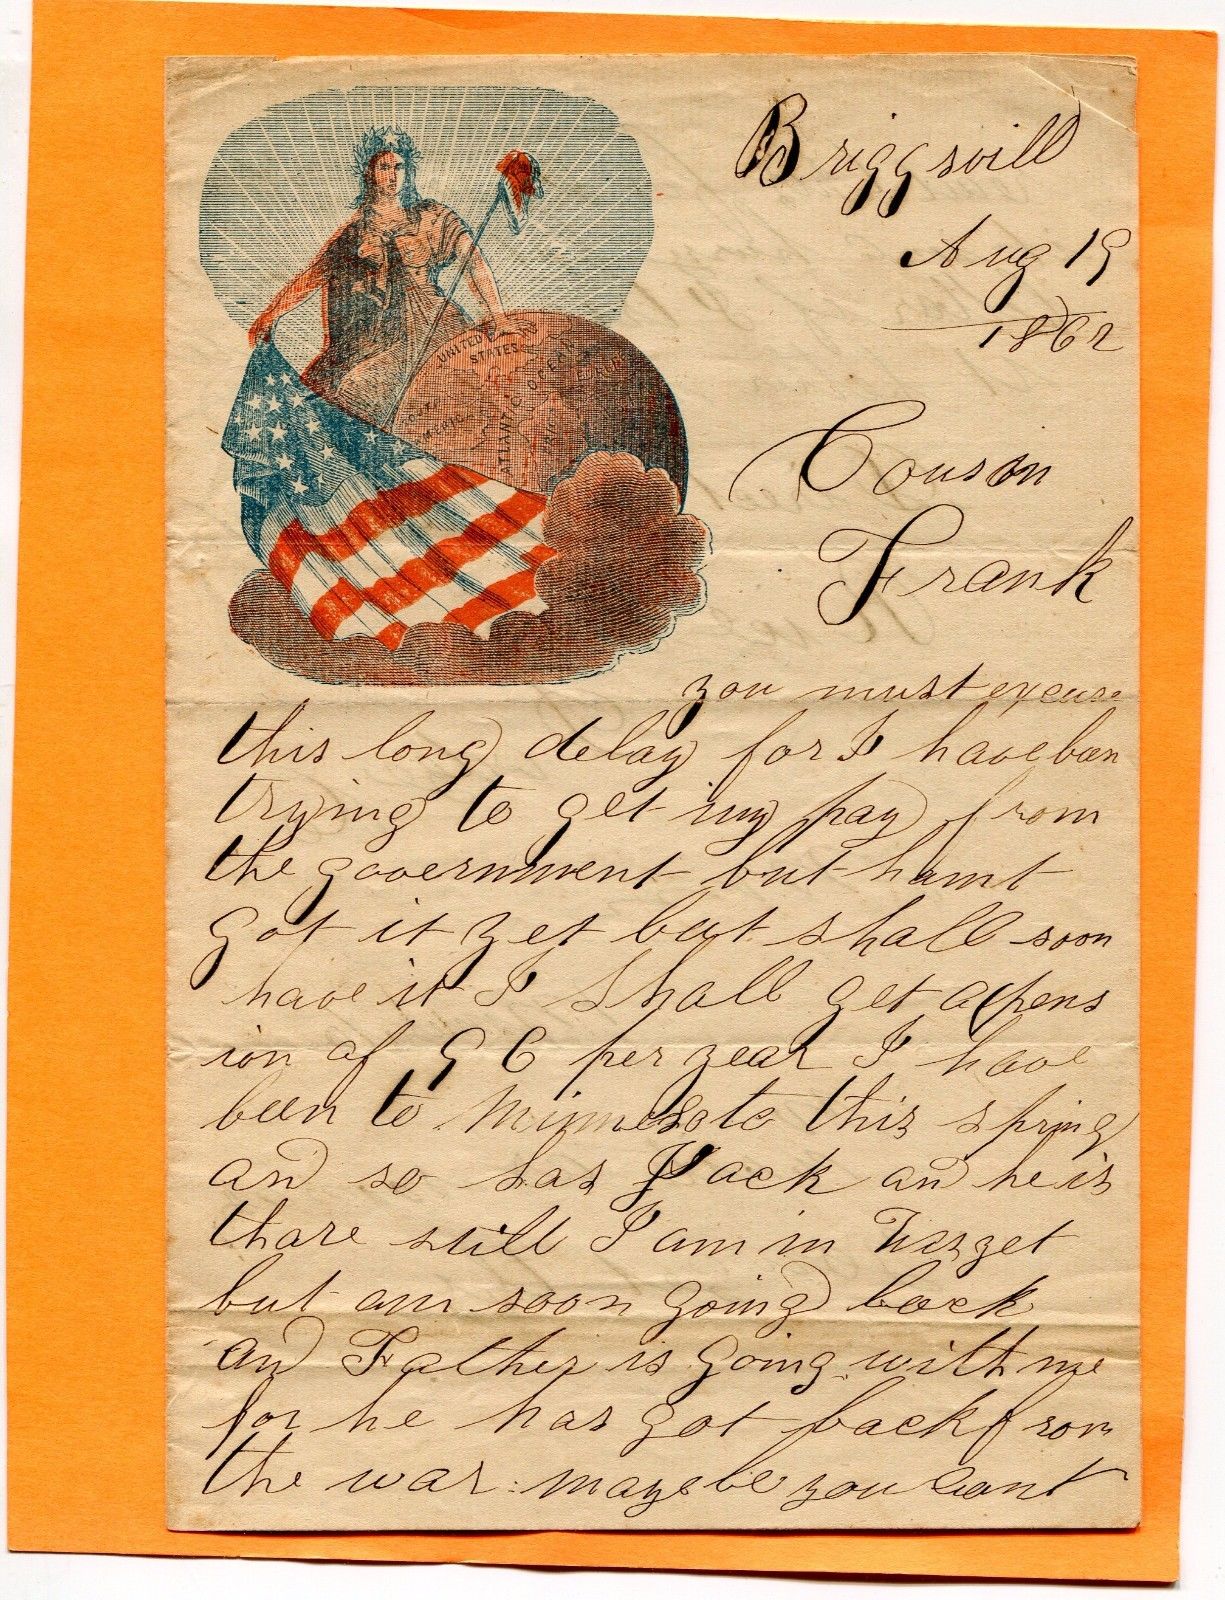 Briggsvill
Aug 19
1862
UNITED
STATES
ATLANTIC OCEAN
Couson
Frank
you must excuse
this long delay for I have ben
trying to get my pay from
the government but haint
got it yet but shall soon
have it I shall get a pens
ion of 96 per year I have
been to Minnesota this spring
and so has Jack and he is
thare still I am in yet
but am soon going back
and Father is going with me
for he has got back from
the war mayebe you cant